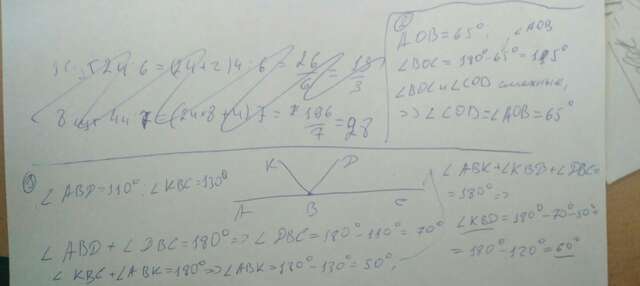 6 = (24+2)4 : 6 = 26/6 = 13/3
7 = 196/7 = 28
②
AOB = 65°, ∠AOB
∠BOC = 180° - 65° = 115°
∠BOC и ∠COD смежные,
=> ∠COD = ∠AOB = 65°
∠ABD = 110°, ∠KBC = 130°
K D
A B C
∠ABD + ∠DBC = 180° => ∠DBC = 180° - 110° = 70°
∠KBC + ∠ABK = 180° => ∠ABK = 180° - 130° = 50°,
∠ABK + ∠KBD + ∠DBC =
= 180° =>
∠KBD = 180° - 70° - 50° =
= 180° - 120° = 60°